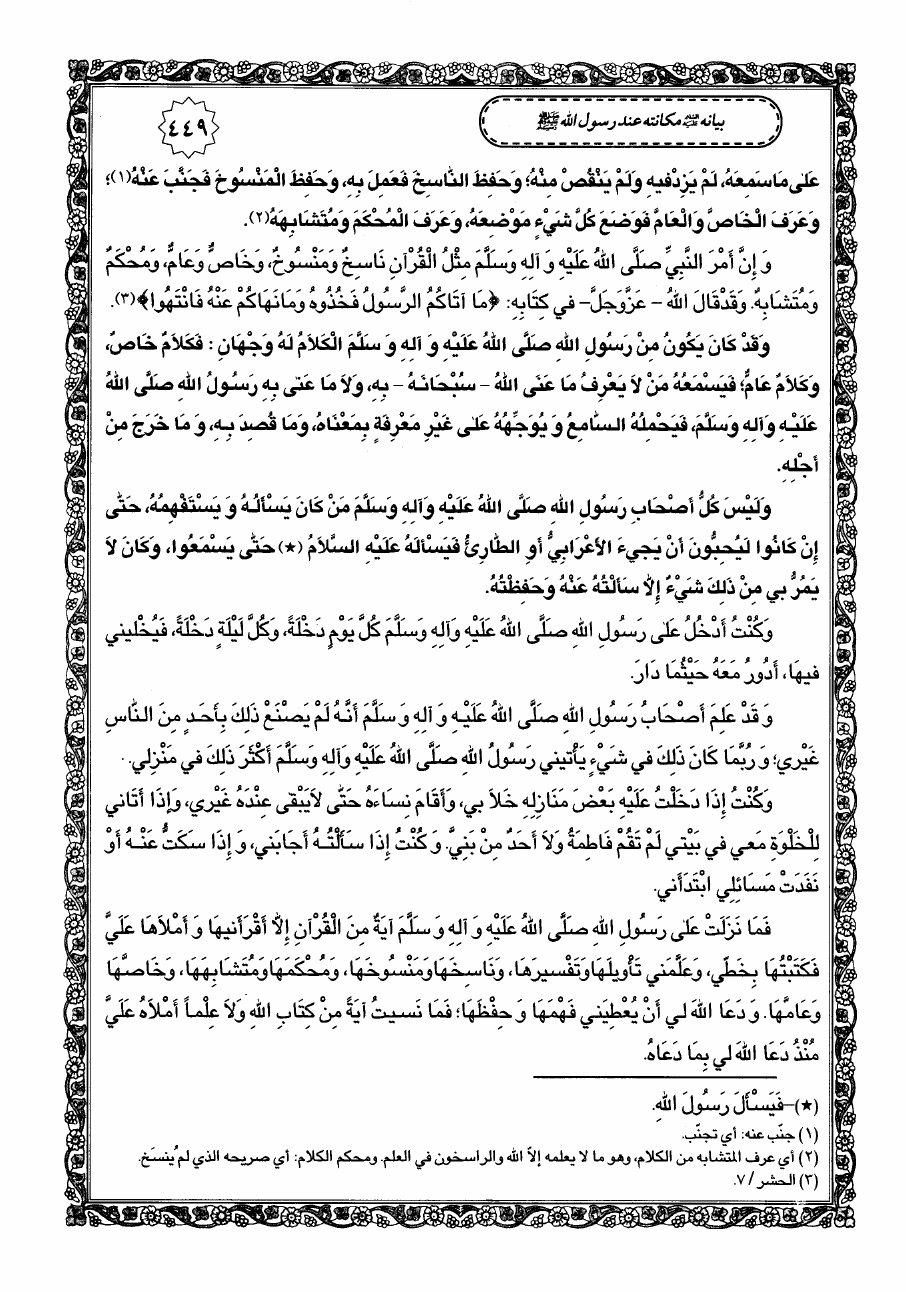 بيانه ﷺ مكانته عند رسول الله ﷺ
٤٤٩
عَلىٰ مَا سَمِعَهُ، لَمْ يَزِدْ فيهِ وَلَمْ يَنْقُصْ مِنْهُ؛ وَحَفِظَ النّاسِخَ فَعَمِلَ بِهِ، وَحَفِظَ الْمَنْسُوخَ فَجَنَّبَ عَنْهُ(١)؛
وَعَرَفَ الْخَاصَّ وَالْعَامَّ فَوَضَعَ كُلَّ شَيْءٍ مَوْضِعَهُ، وَعَرَفَ الْمُحْكَمَ وَمُتَشَابِهَهُ(٢).
وَ إِنَّ أَمْرَ النَّبِيِّ صَلَّى اللهُ عَلَيْهِ وَ آلِهِ وَسَلَّمَ مِثْلُ الْقُرْآنِ نَاسِخٌ وَمَنْسُوخٌ، وَخَاصٌّ وَعَامٌّ، وَمُحْكَمٌ
وَمُتَشَابِهٌ. وَقَدْ قَالَ اللهُ – عَزَّوَجَلَّ– في كِتَابِهِ: ﴿مَا آتَاكُمُ الرَّسُولُ فَخُذُوهُ وَمَا نَهَاكُمْ عَنْهُ فَانْتَهُوا﴾(٣).
وَقَدْ كَانَ يَكُونُ مِنْ رَسُولِ اللهِ صَلَّى اللهُ عَلَيْهِ وَ آلِهِ وَ سَلَّمَ الْكَلَامُ لَهُ وَجْهَانِ : فَكَلَامٌ خَاصٌ،
وَكَلَامٌ عَامٌّ؛ فَيَسْمَعُهُ مَنْ لَا يَعْرِفُ مَا عَنَى اللهُ – سُبْحَانَهُ – بِهِ، وَلَا مَا عَنى بِهِ رَسُولُ اللهِ صَلَّى اللهُ
عَلَيْهِ وَآلِهِ وَسَلَّمَ، فَيَحْمِلُهُ السَّامِعُ وَ يُوَجِّهُهُ عَلىٰ غَيْرِ مَعْرِفَةٍ بِمَعْنَاهُ، وَمَا قُصِدَ بِهِ، وَ مَا خَرَجَ مِنْ
أَجْلِهِ.
وَلَيْسَ كُلُّ أَصْحَابِ رَسُولِ اللهِ صَلَّى اللهُ عَلَيْهِ وَآلِهِ وَسَلَّمَ مَنْ كَانَ يَسْأَلُهُ وَ يَسْتَفْهِمُهُ، حَتّى
إِنْ كَانُوا لَيُحِبُّونَ أَنْ يَجِيءَ الأَعْرَابِيُّ أَوِ الطّارِئُ فَيَسْأَلَهُ عَلَيْهِ السَّلَامُ (★) حَتّى يَسْمَعُوا، وَكَانَ لَا
يَمُرُّ بي مِنْ ذَلِكَ شَيْءٌ إِلاّ سَأَلْتُهُ عَنْهُ وَحَفِظْتُهُ.
وَكُنْتُ أَدْخُلُ عَلىٰ رَسُولِ اللهِ صَلَّى اللهُ عَلَيْهِ وَآلِهِ وَسَلَّمَ كُلَّ يَوْمٍ دَخْلَةً، وَكُلَّ لَيْلَةٍ دَخْلَةً، فَيُخْليني
فيهَا، أَدُورُ مَعَهُ حَيْثُمَا دَارَ.
وَ قَدْ عَلِمَ أَصْحَابُ رَسُولِ اللهِ صَلَّى اللهُ عَلَيْهِ وَ آلِهِ وَ سَلَّمَ أَنَّهُ لَمْ يَصْنَعْ ذَلِكَ بِأَحَدٍ مِنَ النّاسِ
غَيْري؛ وَ رُبَّمَا كَانَ ذَلِكَ في شَيْءٍ يَأْتيني رَسُولُ اللهِ صَلَّى اللهُ عَلَيْهِ وَآلِهِ وَسَلَّمَ أَكْثَرَ ذَلِكَ في مَنْزِلي.
وَكُنْتُ إِذَا دَخَلْتُ عَلَيْهِ بَعْضَ مَنَازِلِهِ خَلاَ بي، وَأَقَامَ نِسَاءَهُ حَتّى لاَيَبْقى عِنْدَهُ غَيْري، وَإِذَا أَتَاني
لِلْخَلْوَةِ مَعي في بَيْتي لَمْ تَقُمْ فَاطِمَةُ وَلاَ أَحَدٌ مِنْ بَنِيَّ. وَ كُنْتُ إِذَا سَأَلْتُهُ أَجَابَني، وَ إِذَا سَكَتُّ عَنْهُ أَوْ
نَفَدَتْ مَسَائِلي ابْتَدَأَني.
فَمَا نَزَلَتْ عَلىٰ رَسُولِ اللهِ صَلَّى اللهُ عَلَيْهِ وَ آلِهِ وَ سَلَّمَ آيَةٌ مِنَ الْقُرْآنِ إِلاّ أَقْرَأَنيهَا وَ أَمْلاَهَا عَلَيَّ
فَكَتَبْتُهَا بِخَطّي، وَعَلَّمَني تَأْويلَهَا وَتَفْسيرَهَا، وَنَاسِخَهَا وَمَنْسُوخَهَا، وَمُحْكَمَهَا وَمُتَشَابِهَهَا، وَخَاصَّهَا
وَعَامَّهَا. وَ دَعَا اللهَ لي أَنْ يُعْطِيَني فَهْمَهَا وَ حِفْظَهَا؛ فَمَا نَسيتُ آيَةً مِنْ كِتَابِ اللهِ وَلاَ عِلْماً أَمْلاَهُ عَلَيَّ
مُنْذُ دَعَا اللهَ لي بِمَا دَعَاهُ.
(★)–فَيَسْأَلَ رَسُولَ اللهِ.
(١) جنّب عنه: أي تجنّب.
(٢) أي عرف المتشابه من الكلام، وهو ما لا يعلمه إلاّ الله والراسخون في العلم. ومحكم الكلام: أي صريحه الذي لم يُنسَخ.
(٣) الحشر / ٧.